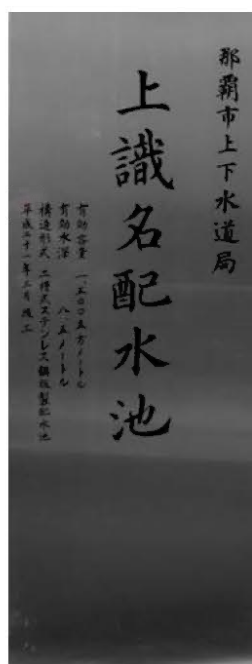 那覇市上下水道局
上識名配水池
有効容量 一、五〇〇立方メートル
有効水深 八.五メートル
構造形式 二槽式ステンレス鋼板製配水池
平成二十一年三月竣工